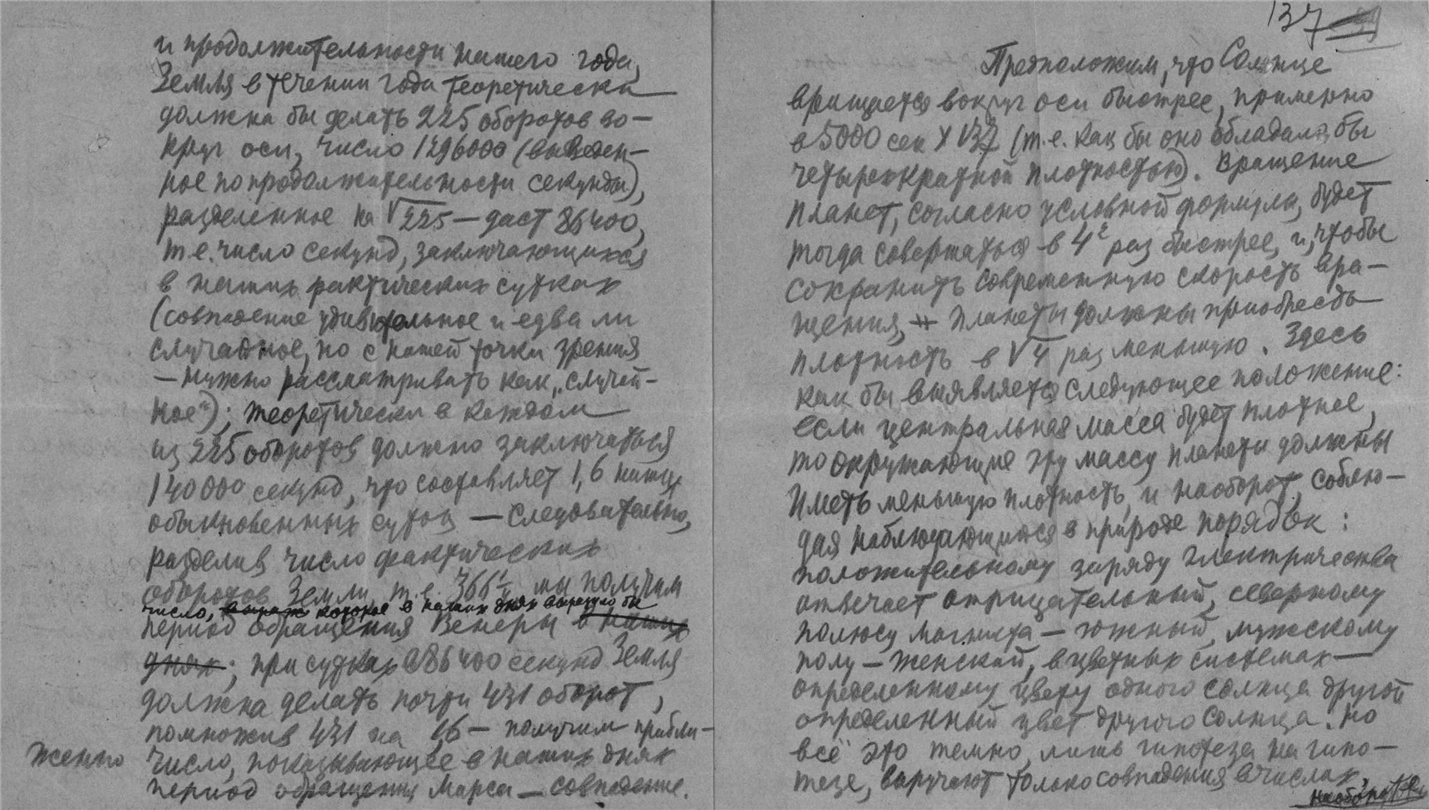 и продолжительности нашего года,
Земля в течении года теоретически
должна бы делать 225 оборотов во-
круг оси, число 1296000 (выведен-
ное по продолжительности секунды),
разделенное на √225 — даст 86400,
т.е. число секунд, заключающихся
в наших фактических сутках
(совпадение удивительное и едва ли
случайное, но с нашей точки зрения
— нужно рассматривать как „случай-
ное"); теоретически в каждом
из 225 оборотов должно заключаться
140000 секунд, что составляет 1,6 наших
обыкновенных суток — следовательно,
разделив число фактических
оборотов Земли, т.е. 366 мы получим
число, которое в наших днях выразило бы
период обращения Венеры в наших
днях; при сутках в 86400 секунд Земля
должна делать почти 431 оборот,
помножив 431 на 1,6 — получим прибли-
женно число, показывающее в наших днях
период обращения Марса — совпадение.
137
Предположим, что Солнце
вращается вокруг оси быстрее, примерно
в 5000 сек × √37 (т.е. как бы оно обладало бы
четырехкратной плотностью). Вращение
планет, согласно условной формулы, будет
тогда совершаться в 4² раз быстрее, и, чтобы
сохранить современную скорость вра-
щения, планеты должны приобресть
плотность в √4 раз меньшую. Здесь
как бы выявляется следующее положение:
если центральная масса будет плотнее,
то окружающие эту массу планеты должны
иметь меньшую плотность, и наоборот, соблю-
дая наблюдающийся в природе порядок:
положительному заряду электричества
отвечает отрицательный, северному
полюсу магнита — южный, мужскому
полу — женский, в цветных системах —
определенному цвету одного солнца другой
определенный цвет другого солнца. Но
всё это темно, лишь гипотеза на гипо-
тезе, выручают только совпадения в числах,